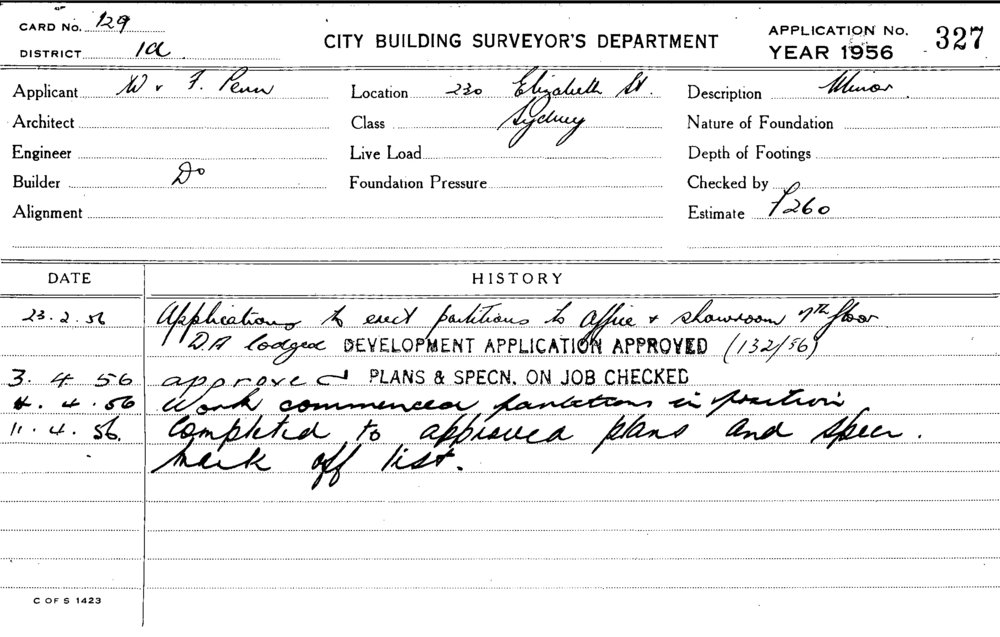 CARD No. 129
DISTRICT 1a
CITY BUILDING SURVEYOR'S DEPARTMENT
APPLICATION No. 327
YEAR 1956
Applicant W & F. Penn Location 230 Elizabeth St. Description Minor
Architect Class Sydney Nature of Foundation
Engineer Live Load Depth of Footings
Builder Do Foundation Pressure Checked by
Alignment Estimate £260
DATE HISTORY
23.2.56 Applications to erect partitions to office & showroom 7th floor
D.A lodged DEVELOPMENT APPLICATION APPROVED (132/56)
3. 4 56 approved PLANS & SPECN. ON JOB CHECKED
4. 4. 56 Work commenced partitions in position
11. 4. 56. Completed to approved plans and specn.
Mark off list.
C OF S 1423